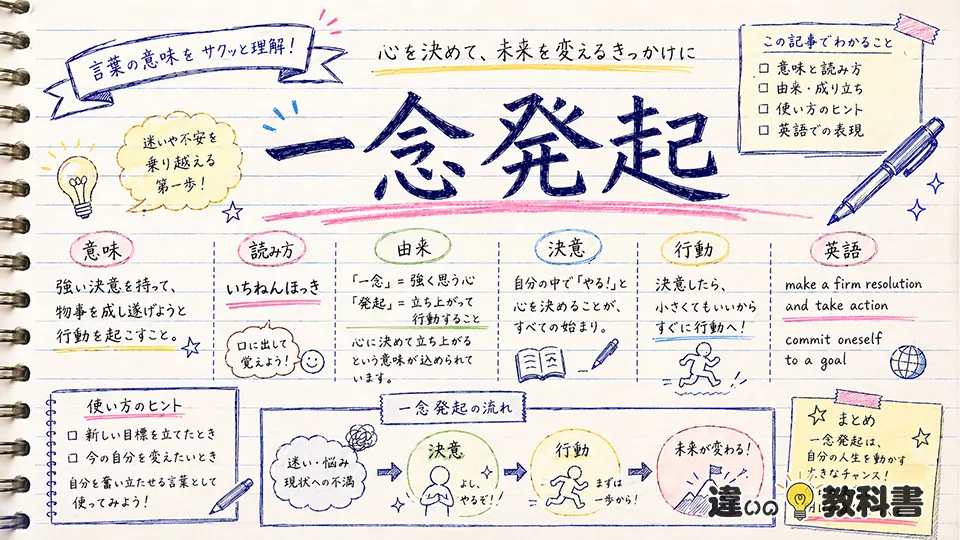 言葉の意味を サクッと理解!
心を決めて、未来を変えるきっかけに
この記事でわかること
□ 意味と読み方
□ 由来・成り立ち
□ 使い方のヒント
□ 英語での表現
迷いや不安を
乗り越える
第一歩!
一念発起
意味
強い決意を持って、
物事を成し遂げようと
行動を起こすこと。
読み方
いちねんほっき
口に出して
覚えよう!
由来
「一念」= 強く思う心
「発起」= 立ち上がって
行動すること
心に決めて立ち上がる
という意味が込められて
います。
決意
自分の中で「やる!」と
心を決めることが、
すべての始まり。
行動
決意したら、
小さくてもいいから
すぐに行動へ!
英語
make a firm resolution
and take action
commit oneself
to a goal
使い方のヒント
□ 新しい目標を立てたとき
□ 今の自分を変えたいとき
自分を奮い立たせる言葉として
使ってみよう!
一念発起の流れ
迷い・悩み
現状への不満
決意
よし、
やるぞ!!
行動
まずは
一歩から!
未来が変わる!
まとめ
一念発起は、
自分の人生を動かす
大きなチャンス!
違いの教科書